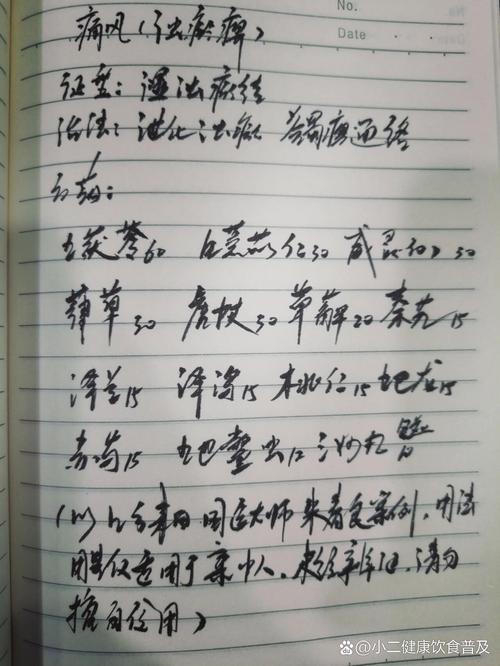 No.
Date
痛风（浊瘀痹）
证型：湿浊瘀结
治法：泄化浊瘀 蠲痹通络
药：
土茯苓60 薏苡仁30 威灵仙30
葎草30 虎杖30 萆薢20 秦艽15
泽兰15 泽泻15 桃仁15 地龙15
赤芍15 土鳖虫12 三妙丸
（以上方来自国医大师朱春案例，用法
用量仅适用于案中人，未经辨证，请勿
擅自使用）
小二健康饮食普及